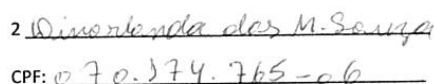 2 Dinorlanda das M. Souza
CPF: 070.174.765-06